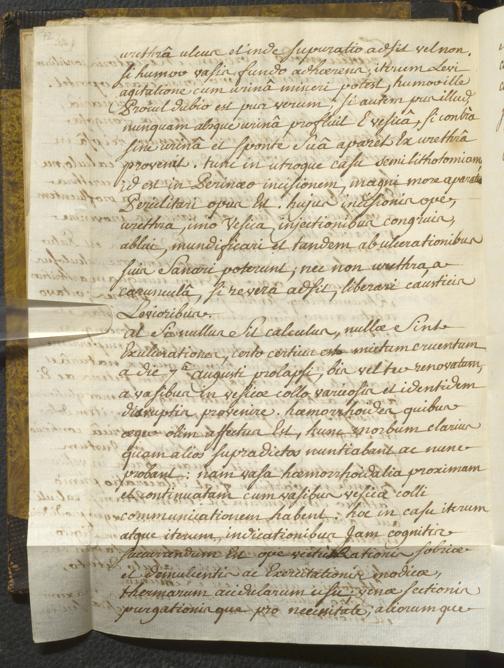 urethrâ ulcus et inde supuratio adsit vel non.
si humor vasis fundo adhærens, iterum Levi
agitatione cum urinâ misceri potest, humor ille
Procul dubio est pus verum, si autem pus illud
nunquam absque urinâ profluit E vesicâ, si contra
sine urinâ et sponte Suâ aparet Ex urethrâ
provenit. tunc in utroque casu semilithotomiam
id est in Perinæo incisionem, magni more aparatus
Periclitari opus Est, hujus incisionis ope,
urethra, imo Vesica, injectionibus congruis,
ablui, mundificari et tandem ab ulcerationibus
suis Sanari poterunt, nec non urethra, a
caruncula, si revera adsit, liberari causticis
Levioribus.
at Si nullus Sit calculus, nullæ Sint
Exulcerationes, certo certius est mictum cruentum
a die 7â augusti prolapsi, bis vel ter renovatum,
a vasibus in vesicæ collo varicosis et identidem
disruptis provenire. hæmorrhoides quibus
æger olim affectus Est, hunc morbum clarius
quam alios supradictos nuntiabant ac nunc
probant: nam vasa hæmorrhoidalia proximam
et continuatam cum vasibus vesicæ colli
communicationem habent: hoc in casu iterum
atque iterum, indicationibus Jam cognitis
sucurandum Est ope victus Rationis sobriæ
et demulcentis ac Exercitationis modicæ,
thermarum acidularum usu, venæ sectionis
purgationisque pro necessitate, aliorumque